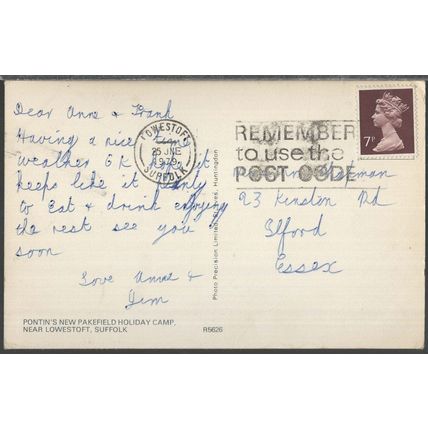 Dear Anne & Frank
Having a nice time
weather OK hope it
keeps like it only
to Eat & drink enjoying
the rest see you
soon
Love Anne &
Jim
PONTIN'S NEW PAKEFIELD HOLIDAY CAMP,
NEAR LOWESTOFT, SUFFOLK
R5626
Photo Precision Limited, St. Ives, Huntingdon
LOWESTOFT
25 JNE
1979
SUFFOLK
REMEMBER
to use the
POST CODE
7P
23 Kinston Rd
Ilford
Essex